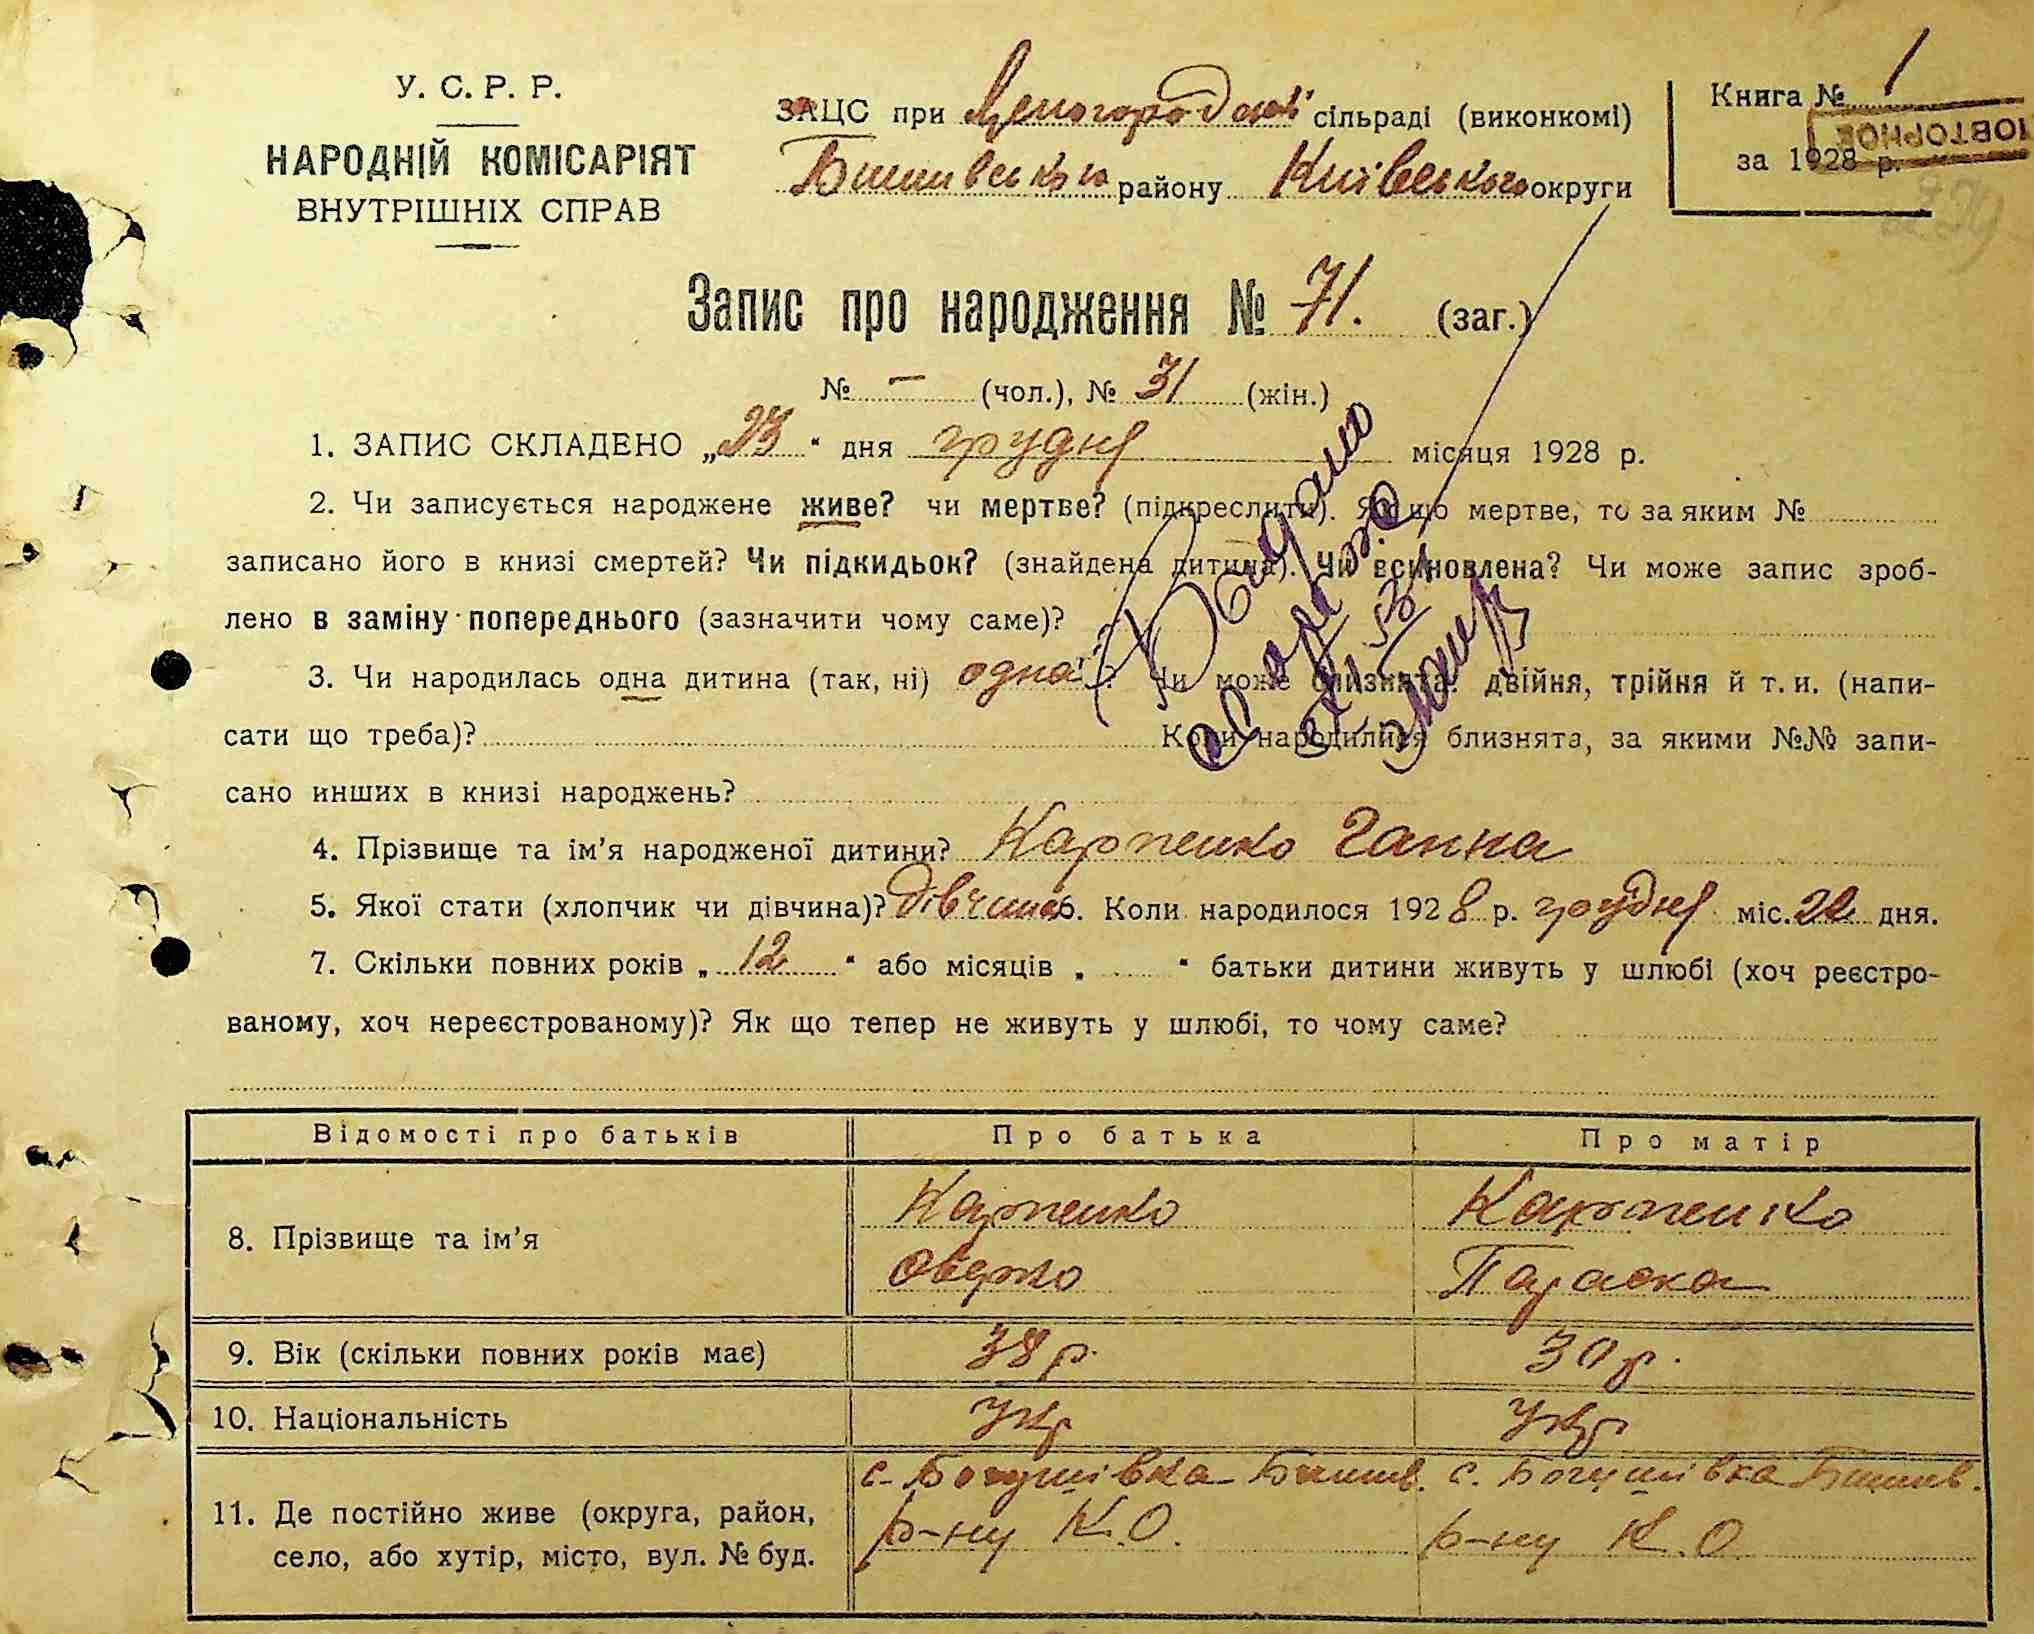 У. С. Р. Р.
НАРОДНІЙ КОМІСАРІЯТ
ВНУТРІШНІХ СПРАВ
ЗАЦС при сільраді (виконкомі)
Бишівського району Київського округи
Книга № 1
ПОВТОРНОЕ
за 1928 р.
Запис про народження № 71. (заг.)
№ — (чол.), № 31 (жін.)
1. ЗАПИС СКЛАДЕНО „23“ дня грудня місяця 1928 р.
2. Чи записується народжене живе? чи мертве? (підкреслити). Як що мертве, то за яким №
записано його в книзі смертей? Чи підкидьок? (знайдена дитина). Чи всиновлена? Чи може запис зроб-
лено в заміну попереднього (зазначити чому саме)?
3. Чи народилась одна дитина (так, ні) одна? Чи може близнята: двійня, трійня й т. и. (напи-
сати що треба)? Коли народилися близнята, за якими №№ запи-
сано инших в книзі народжень?
4. Прізвище та ім'я народженої дитини? Карпенко Ганна
5. Якої стати (хлопчик чи дівчина)? дівчина 6. Коли народилося 1928 р. грудня міс. 22 дня.
7. Скільки повних років „12“ або місяців „ “ батьки дитини живуть у шлюбі (хоч реєстро-
ваному, хоч нереєстрованому)? Як що тепер не живуть у шлюбі, то чому саме?
Відомості про батьків Про батька Про матір
8. Прізвище та ім'я Карпенко Оверко Карпенко Параска
9. Вік (скільки повних років має) 38 р. 30 р.
10. Національність Укр Укр
11. Де постійно живе (округа, район, село, або хутір, місто, вул. № буд. с. Богушівка Бишів. р-ну К.О. с. Богушівка Бишив. р-ну К.О.